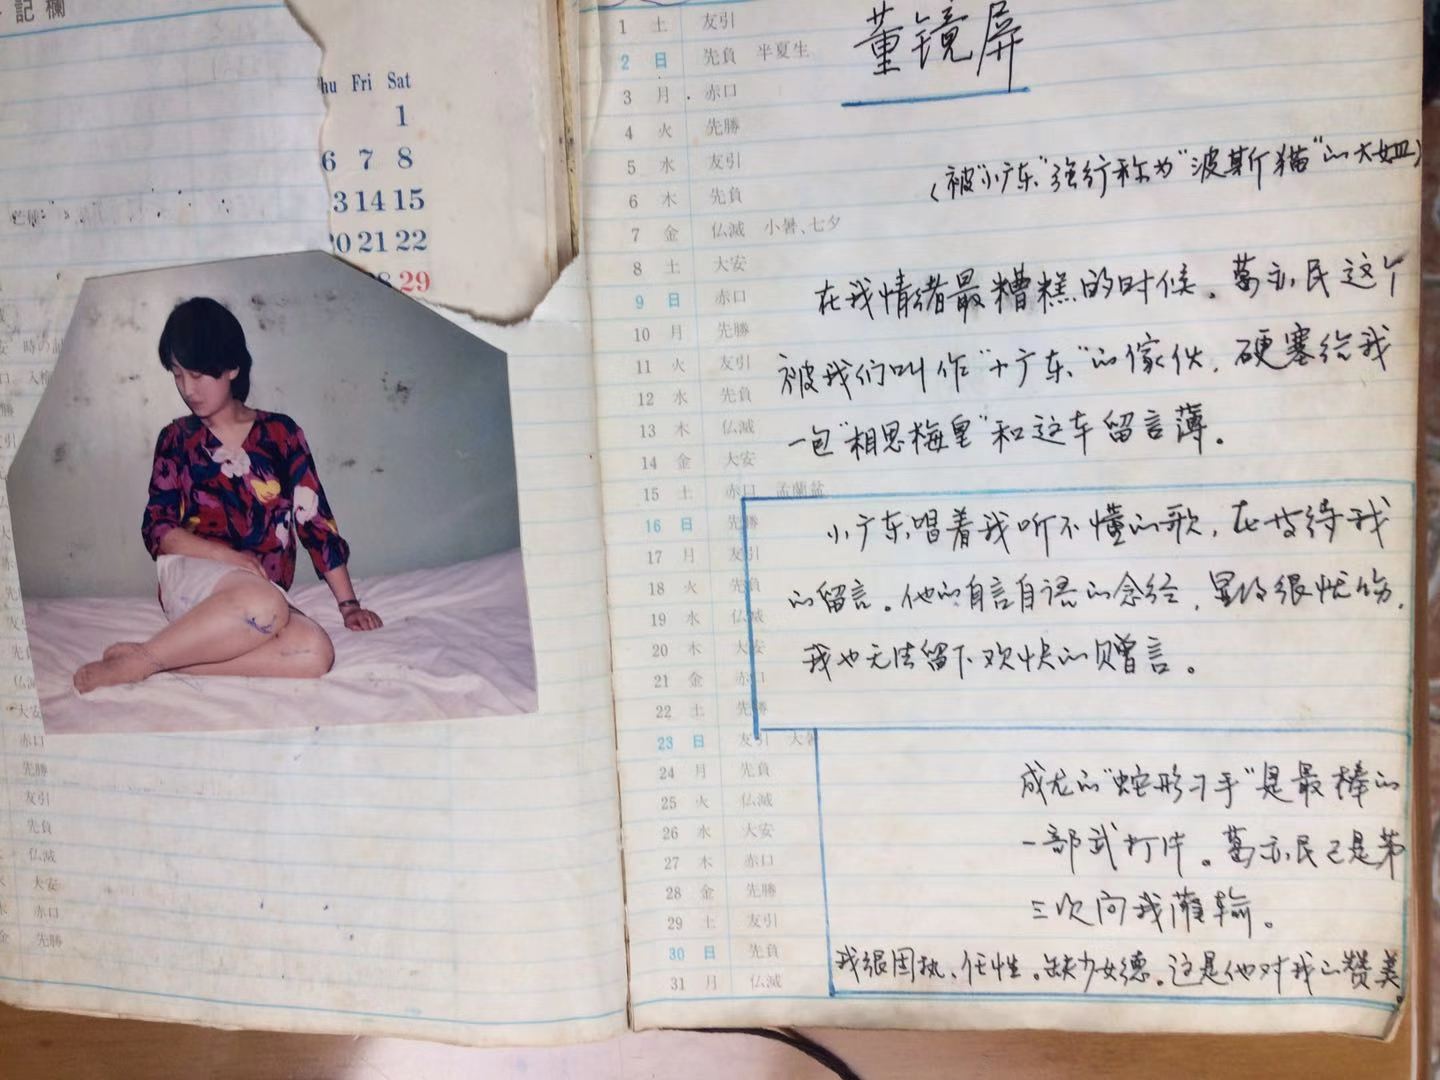 記欄
hu Fri Sat
1
6 7 8
3 14 15
20 21 22
28 29
芒種
時の記
入梅
大安
赤口
先勝
友引
先負
仏滅
大安
赤口
金 先勝
1 土 友引
2 日 先負 半夏生
3 月 赤口
4 火 先勝
5 水 友引
6 木 先負
7 金 仏滅 小暑、七夕
8 土 大安
9 日 赤口
10 月 先勝
11 火 友引
12 水 先負
13 木 仏滅
14 金 大安
15 土 赤口 孟蘭盆
16 日 先勝
17 月 友引
18 火 先負
19 水 仏滅
20 木 大安
21 金 赤口
22 土 先勝
23 日 友引 大暑
24 月 先負
25 火 仏滅
26 水 大安
27 木 赤口
28 金 先勝
29 土 友引
30 日 先負
31 月 仏滅
董镜屏
(被"小广东"强行称为"波斯猫"的大姐)
在我情绪最糟糕的时候。葛亦民这个
被我们叫作"小广东"的傢伙，硬塞给我
一包"相思梅皇"和这车留言薄。
小广东唱着我听不懂的歌，在等待我
的留言。他的自言自语的念经，显得很忧伤，
我也无法留下欢快的赠言。
成龙的"蛇形刁手"是最棒的
一部武打片。葛亦民已是第
三次向我灌输。
我很固执、任性。缺少女德。这是他对我的赞美。